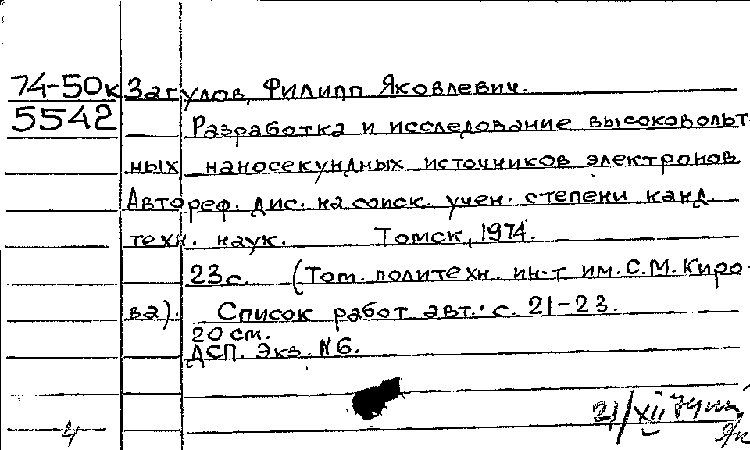 74-50к Загулов, Филипп Яковлевич.
5542 Разработка и исследование высоковольт-
ных наносекундных источников электронов
Автореф. дис. на соиск. учен. степени канд.
техн. наук. Томск, 1974.
23с. (Том. политехн. ин-т им. С.М. Киро-
ва). Список работ авт.: с. 21-23.
20 см.
ДСП. Экз. №6.
21/XII 74